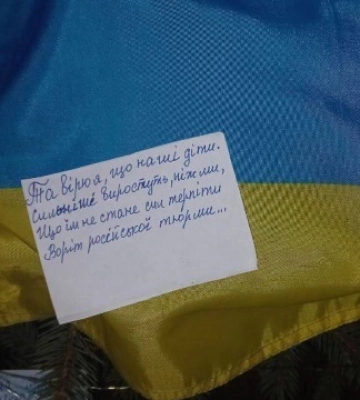 Та вірю я, що наші діти.
Сильніше виростуть, ніж ми,
Що їм не стане сил терпіти
Воріт російської тюрми...